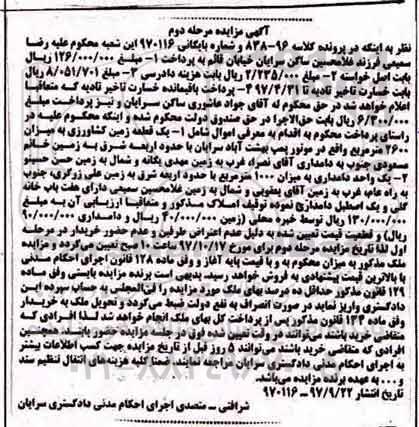 آگهی مزایده مرحله دوم
نظر به اینکه در پرونده کلاسه ۹۶-۸۳۸ و شماره بایگانی ۹۷۰۱۱۶ این شعبه محکوم علیه رضا
سمیعی فرزند غلامحسین ساکن سرایان خیابان قائم به پرداخت ۱- مبلغ ۱۲۶/۰۰۰/۰۰۰ ریال
بابت اصل خواسته ۲- مبلغ ۲/۲۳۵/۰۰۰ ریال بابت هزینه دادرسی ۳- مبلغ ۸/۰۵۱/۷۰۱ ریال
بابت خسارت تاخیر تادیه تا ۹۷/۴/۳۱ ۴- پرداخت باقیمانده خسارت تاخیر تادیه که متعاقبا
اعلام خواهد شد در حق محکوم له آقای جواد عاشوری ساکن سرایان و نیز پرداخت مبلغ
۶/۳۰۰/۰۰۰ ریال بابت حق الاجرا در حق صندوق دولت محکوم شده و اینکه محکوم علیه در
راستای پرداخت محکوم به اقدام به معرفی اموال شامل ۱- یک قطعه زمین کشاورزی به میزان
۲۶۰۰ مترمربع واقع در موتور پمپ بهشت آباد سرایان با حدود اربعه شرق به زمین خانم
مسعودی جنوب به دامداری آقای نصرا، غرب به زمین مهدی یگانه و شمال به زمین حسن حسینو
۲- یک واحد دامداری به میزان ۱۰۰۰ مترمربع با حدود اربعه شرق به زمین علی زورگری، جنوب
به راه عام، غرب به زمین آقای یعقوبی و شمال به زمین غلامحسین سمیعی دارای هفت باب خانه
گلی و یک اصطبل دامداری نموده توقیف املاک مذکور و متعاقبا ارزیابی آن به مبلغ
۱۳۰/۰۰۰/۰۰۰ ریال توسط خبره محلی (زمین ۴۰/۰۰۰/۰۰۰ ریال و دامداری ۹۰/۰۰۰/۰۰۰
ریال) و قطعیت قیمت تعیین شده به دلیل عدم اعتراض طرفین و عدم حضور خریدار در مرحله
اول لذا تاریخ مزایده مرحله دوم برای مورخ ۹۷/۱۰/۱۷ ساعت ۱۰ صبح تعیین می‌گردد و مزایده
ملک مذکور به میزان محکوم به و با قیمت پایه آغاز و وفق ماده ۱۲۸ قانون اجرای احکام مدنی
با بالاترین قیمت پیشنهادی به فروش خواهد رسید. بدیهی است برنده مزایده بایستی وفق ماده
۱۲۹ قانون مذکور حداقل ده درصد بهای ملک مورد مزایده را فی‌المجلس به حساب سپرده این
دادگستری واریز نماید در صورت انصراف به نفع دولت ضبط می‌گردد و تحویل ملک به خریدار
وفق ماده ۱۳۳ قانون مذکور پس از پرداخت کل بهای ملک انجام خواهد شد لذا افرادی که
متقاضی خرید باشند می‌توانند در وقت تعیین شده فوق در جلسه مزایده حضور یابند. همچنین
افرادی که متقاضی خرید باشند می‌توانند ۵ روز قبل از تاریخ مزایده جهت کسب اطلاعات بیشتر
به اجرای احکام مدنی دادگستری سرایان مراجعه نمایند. ضمنا کلیه هزینه های انتقال تنظیم سند
و ... به عهده برنده مزایده می‌باشد.
تاریخ انتشار ۹۷/۹/۲۲- ۹۷۰۱۱۶
شرافتی - متصدی اجرای احکام مدنی دادگستری سرایان